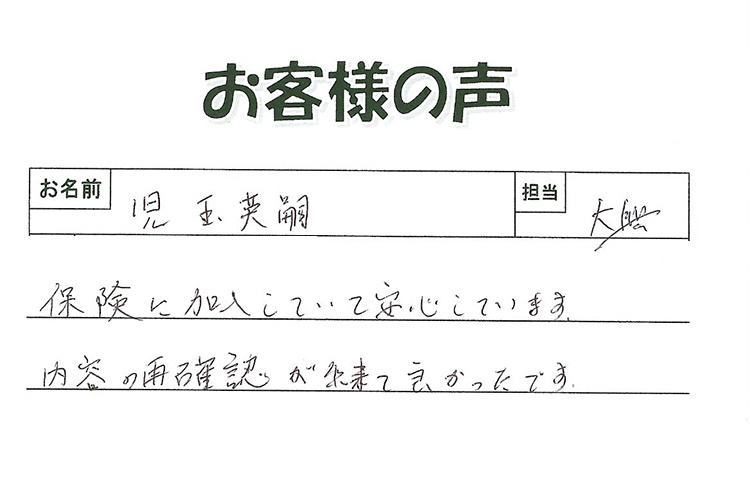 お客様の声
お名前 児玉英嗣 担当 大
保険に加入していて安心しています。
内容の再確認が出来て良かったです。